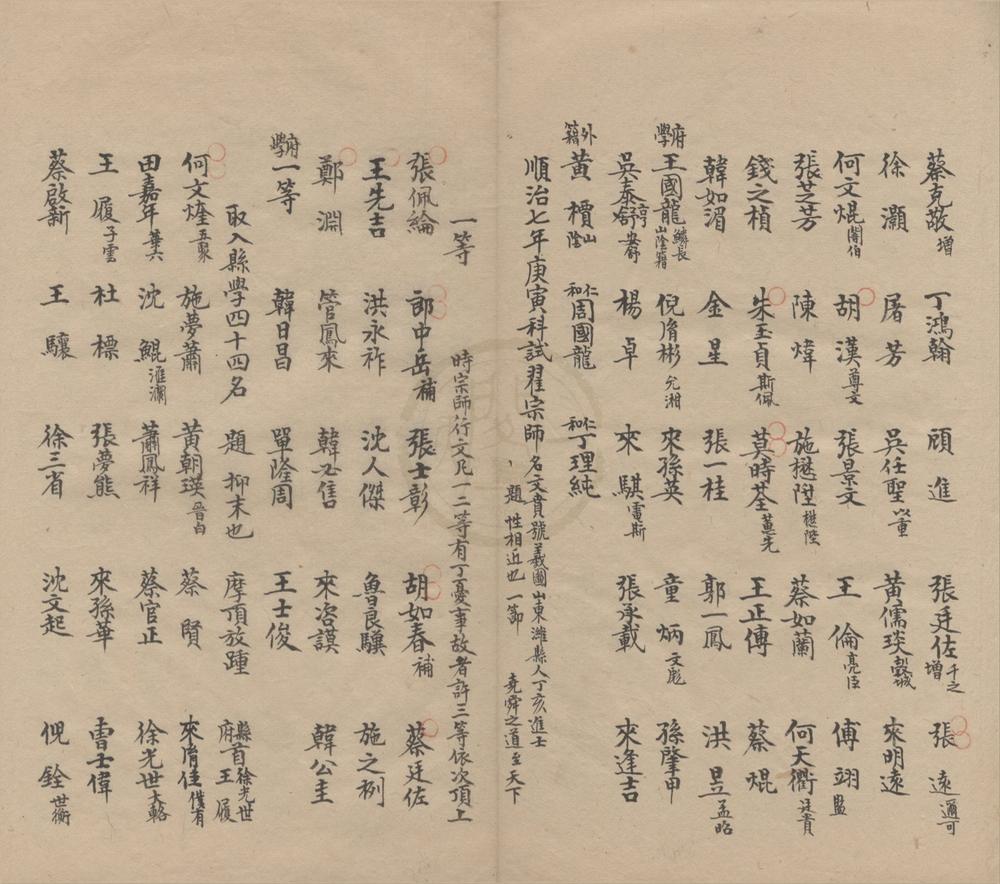 蔡克敬增 丁鴻翰 頑進 張廷佐千之增 張遠邇可
徐灝 屠芳 吳任聖以重 黃儒琰 來明遠
何文焜闇伯 胡漢尊文 張景文 王倫亮臣 傅翊監
張芝芳 陳煒 施懋陞懋陞 蔡如蘭 何天衢廷貴
錢之楨 朱玉貞斯佩 莫時荃蕙先 王正傳 蔡焜
韓如湄 金星 張一桂 郭一鳳 洪昱孟昭
府學王國龍鱗長山陰籍 倪胤彬允湘 來孫英 童炳文彪 孫肇申
吳泰 楊卓 來騏雷斯 張承載 來逢吉
外籍黃櫝山陰 仁和周國龍 仁和丁理純
順治七年庚寅科試翟宗師名文賁號義圖山東濰縣人丁亥進士
題 性相近也一節 堯舜之道至天下
時宗師行文凡一二等有丁憂事故者許三等依次頂上
一等
張佩綸 郎中岳補 張士彰 胡如春補 蔡廷佐
王先吉 洪永祚 沈人傑 魯良驥 施之例
鄭淵 管鳳來 韓必售 來咨謨 韓公圭
府學一等 韓日昌 單隆周 王士俊
取入縣學四十四名 題 抑末也 摩頂放踵 縣首徐光世 府首王履
何文煃五聚 施夢蕭 黃朝瑛晉白 蔡賢 來胤佳僕有
田嘉年葉六 沈鯤滙瀾 蕭鳳祥 蔡官正 徐光世大輅
王履子雲 杜標 張夢熊 來孫華 曹士偉
蔡啟新 王驤 徐三省 沈文起 倪銓世衡